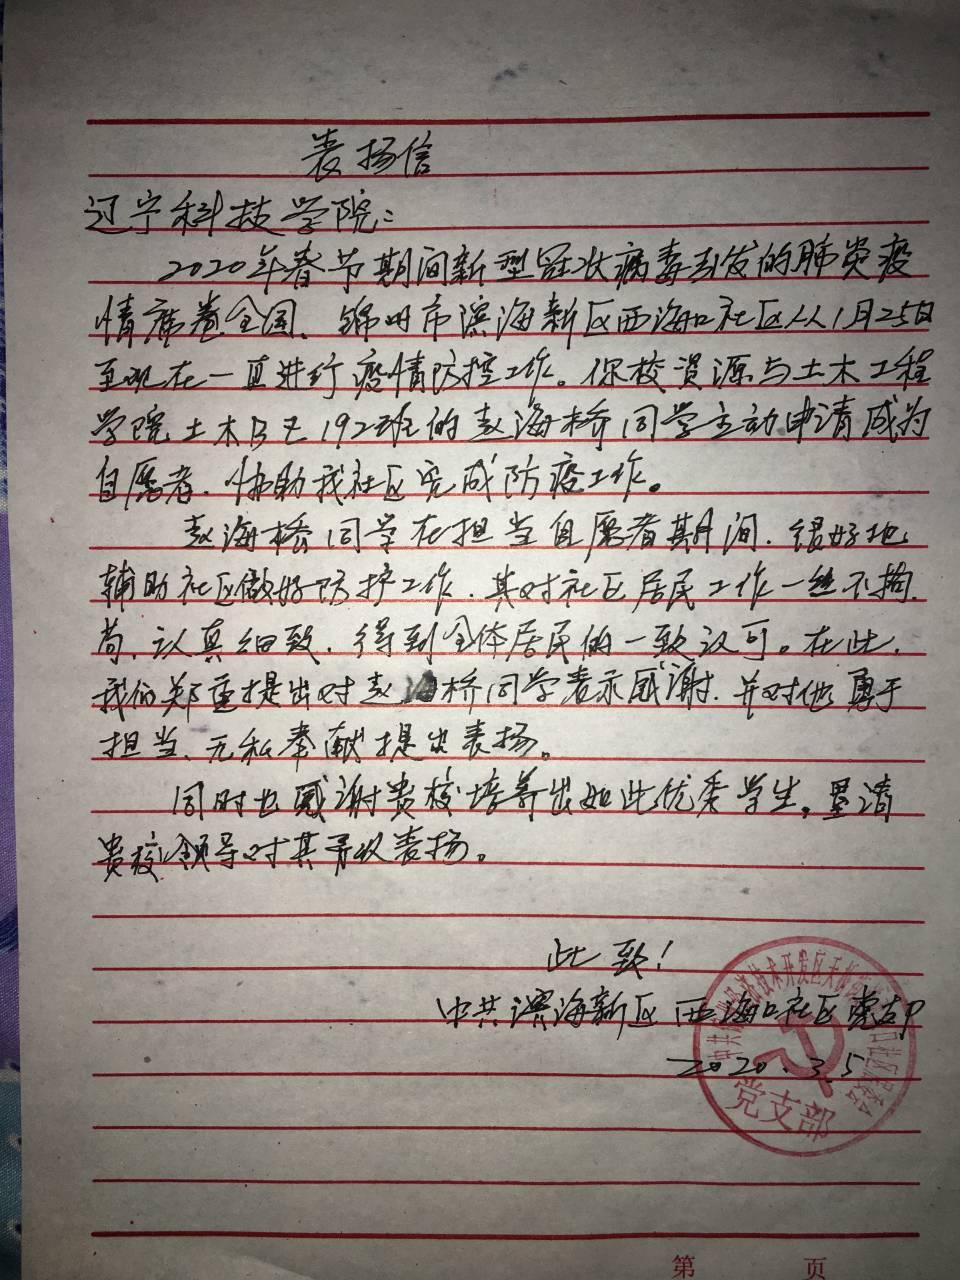 表扬信
辽宁科技学院:
2020年春节期间新型冠状病毒引发的肺炎疫
情席卷全国、锦州市滨海新区西海口社区从1月25日
至现在一直进行疫情防控工作。你校资源与土木工程
学院土木BZ192班的赵海桥同学主动申请成为
自愿者、协助我社区完成防疫工作。
赵海桥同学在担当自愿者期间、很好地
辅助社区做好防护工作、其对社区居民工作一丝不拘
苟、认真细致、得到全体居民的一致认可。在此、
我们郑重提出对赵海桥同学表示感谢、并对他勇于
担当、无私奉献提出表扬。
同时也感谢贵校培养出如此优秀学生,恳请
贵校领导对其予以表扬。
此致!
中共滨海新区西海口社区党支部
2020.3.5
党支部
第 页